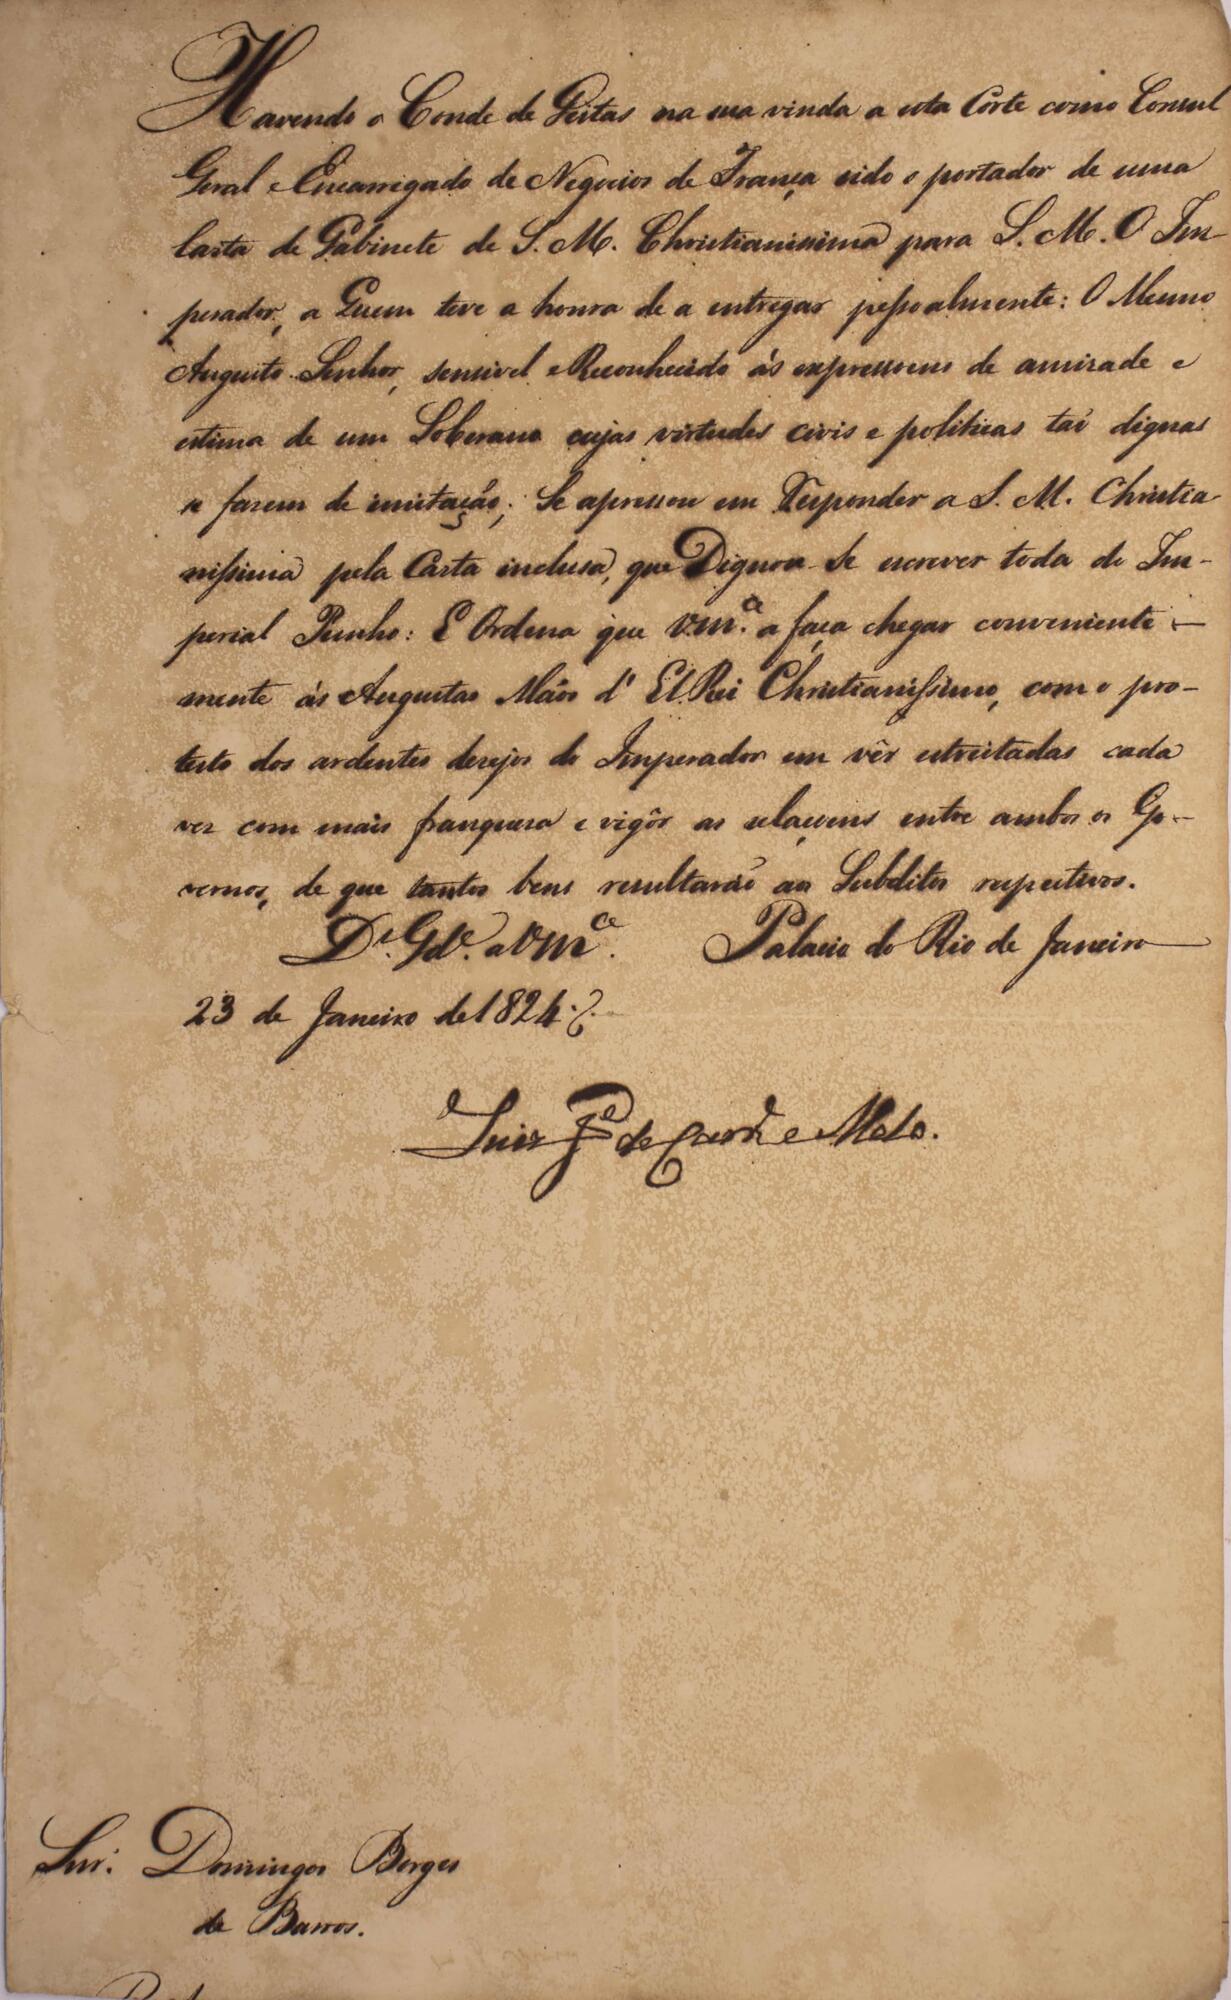 Havendo o Conde de Gestas na sua vinda a esta Côrte como Consul
Geral e Encarregado de Negocios de França sido o portador de uma
Carta de Gabinete de S. M. Christianissima para S. M. O Im-
perador, a Quem teve a honra de a entregar pessoalmente: O Mesmo
Augusto Senhor, sensivel e Reconhecido ás expressoens de amizade e
estima de um Soberano cujas virtudes civis e politicas taõ dignas
se fazem de imitação; Se apressou em Responder a S. M. Christia-
nissima pela Carta inclusa, que Dignou-Se escrever toda do Im-
perial Punho: E Ordena que V.m.ce a faça chegar conveniente-
mente ás Augustas Mãos d'El Rei Christianissimo, com o pro-
testo dos ardentes desejos do Imperador em vêr estreitadas cada
vez com mais franqueza e vigôr as relaçoens entre ambos os Go-
vernos, de que tantos bens resultaráõ aos Subditos respectivos.
D.s G.de a V.m.ce. Palacio do Rio de Janeiro
23 de Janeiro de 1824.
Luiz Jº de Carvº e Mello.
Snr. Domingos Borges
de Barros.